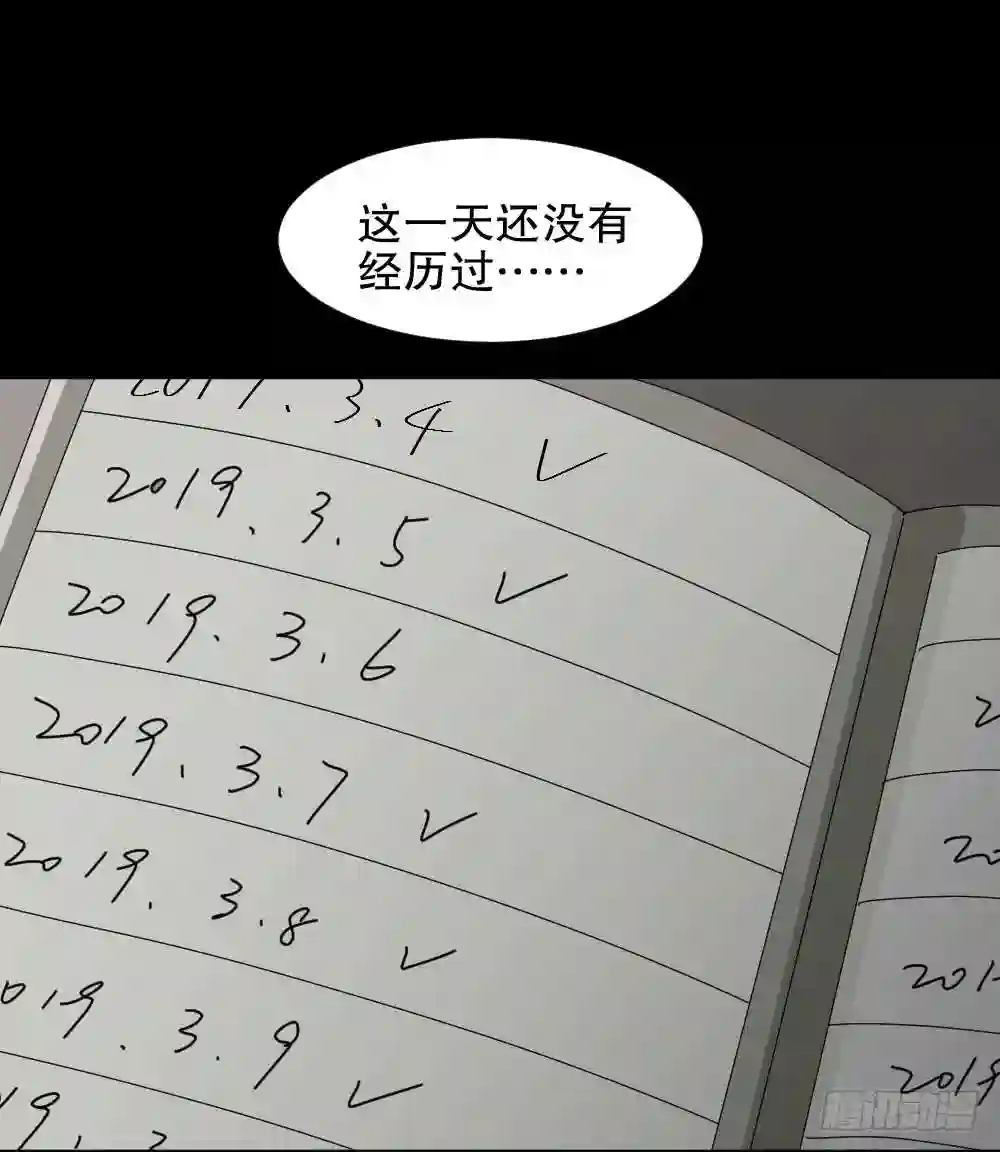 这一天还没有
经历过……
2019.3.4 ✓
2019.3.5 ✓
2019.3.6
2019.3.7 ✓
2019.3.8 ✓
2019.3.9 ✓
2
20
201
2019
腾讯动漫